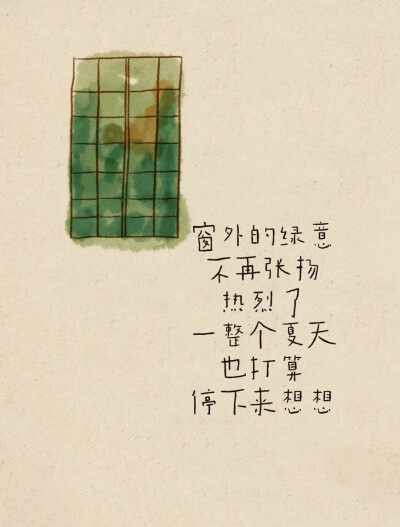 窗外的绿意
不再张扬
热烈了
一整个夏天
也打算
停下来想想